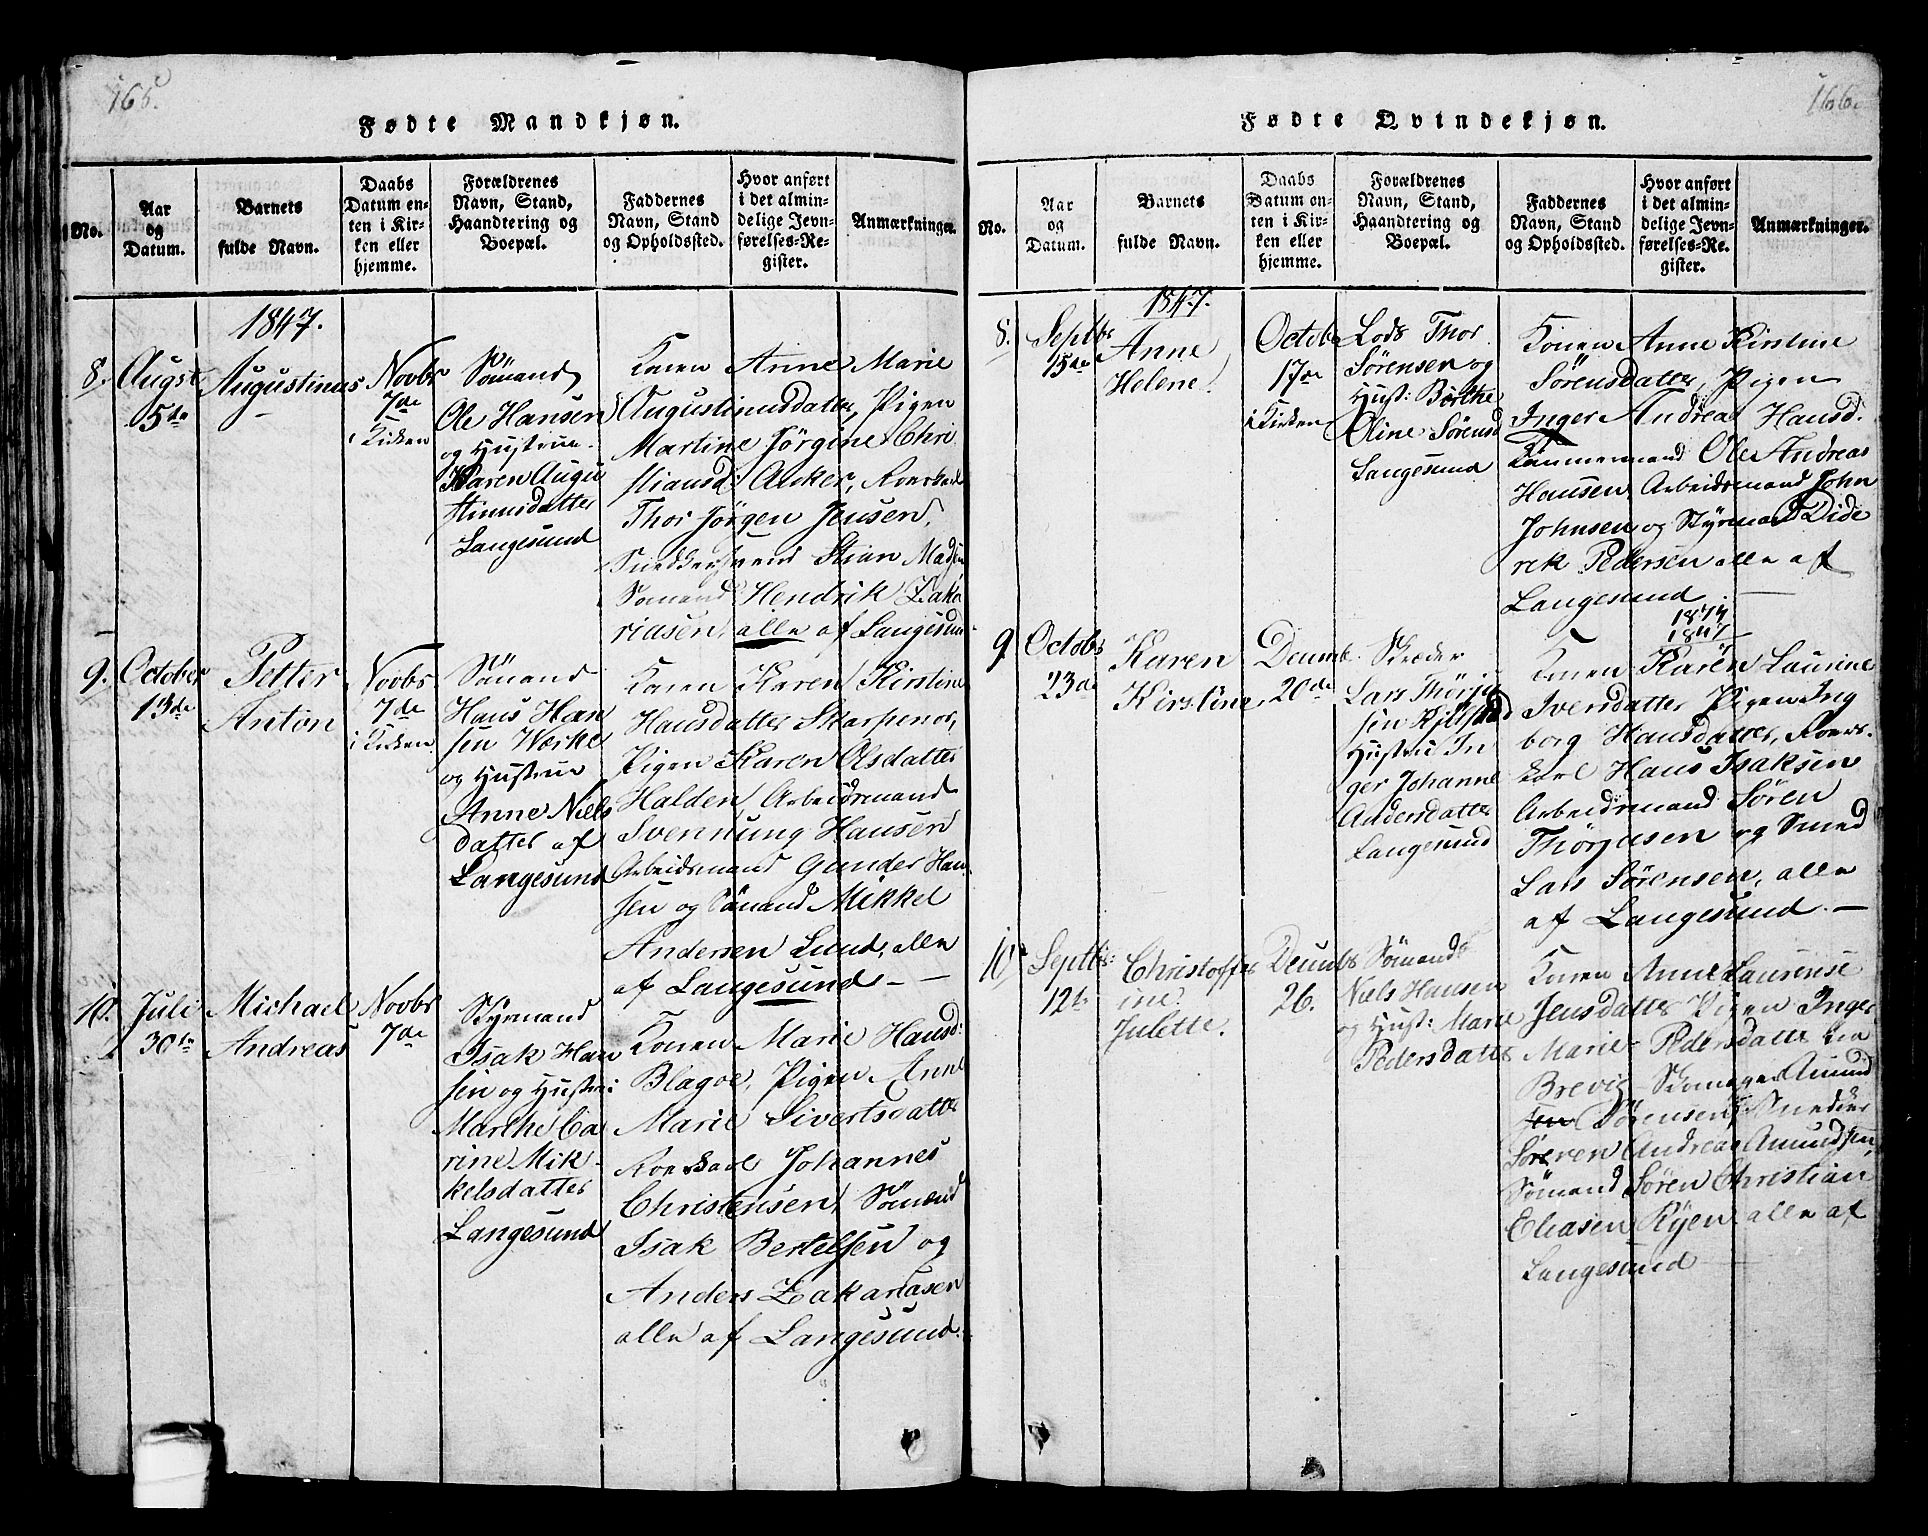 165.
Fødte Mandkjøn.
No.
Aar
og
Datum.
Barnets
fulde Navn.
Daabs
Datum en-
ten i Kir-
ken eller
hjemme.
Forældrenes
Navn, Stand,
Haandtering og
Boepæl.
Faddernes
Navn, Stand
og Opholdssted.
Hvor anført
i det almin-
delige Jevn-
førelses-Re-
gister.
Anmærkninger.
1847.
8.
Augst
5te
Augustinus
Novbr
7de
i Kirken
Sømand
Ole Hansen
og Hustrue
Karen Augu
stinusdatter
Langesund
Konen Anne Marie
Augustinusdatter, Pigen
Martine Jörgine Chri
stiansd: Acker, Roerskarl
Thor Jörgen Jensen,
Snedkersvend Stian Madsen
Sømand Hendrik Zaka
riasen, alle af Langesund
9.
October
13de
Petter
Anton
Novbr
7de
i Kirken
Sømand
Hans Han
sen Wærke
og Hustrue
Anne Niels
datter af
Langesund
Konen Karen Kirstine
Hansdatter Skarpenor,
Pigen Karen Olsdatter
Halden, Arbeidsmand
Svennung Hansen
Arbeidsmand Gunder Han
sen og Sømand Mikkel
Andersen Lund, alle
af Langesund
10.
Juli
30te
Michael
Andreas
Novbr
7de
Styrmand
Isak Han
sen og Hustru
Marthe Ca
rine Mik
kelsdatter
Langesund
Konen Marie Hansd:
Blagoe, Pigen Anne
Marie Sivertsdatter
Roerskarl Johannes
Christensen, Sømand
Isak Bertelsen og
Anders Zakariasen
alle af Langesund.
166.
Fødte Qvindekjøn.
No.
Aar
og
Datum.
Barnets
fulde Navn.
Daabs
Datum en-
ten i Kir-
ken eller
hjemme.
Forældrenes
Navn, Stand,
Haandtering og
Boepæl.
Faddernes
Navn, Stand
og Opholdssted.
Hvor anført
i det almin-
delige Jevn-
førelses-Re-
gister.
Anmærkninger.
1847.
8.
Septbr
15de
Anne
Helene
Octobr
17de
i Kirken
Lods Thor
Sørensen og
Hust: Birthe
Oline Sørensd
Langesund
Konen Anne Kirstine
Sørensdatter, Pigen
Inger Andrea Hansd.
Tømmermand Ole Andreas
Hansen, Arbeidsmand John
Johnsen og Styrmand Dide
rek Pedersen alle af
Langesund
1847
9.
Octobr
23de
Karen
Kirstine
Decemb.
20de
Skræder
Lars Thörja
sen
Hustru In
ger Johanne
Andersdatter
Langesund
Konen Karen Laurine
Iversdatter Pigen Ing
borg Hansdatter, Roers-
karl Hans Isaksen
Arbeidsmand Søren
Thörjasen og Smed
Lars Sørensen, alle
af Langesund.
10
Septbr:
12te
Christoffer
ine
Julette.
Decembr
26.
Sømand
Niels Hansen
og Hust: Marie
Pedersdatter
Konen Anne Laurense
Jensdatter Pigen Inger
Marie Pedersdatter
Brevig Skomager Amund
Sørensen, Snedker
Søren Andreas Amundsen,
Sømand Søren Christian
Eliasen Ryen alle af
Langesund